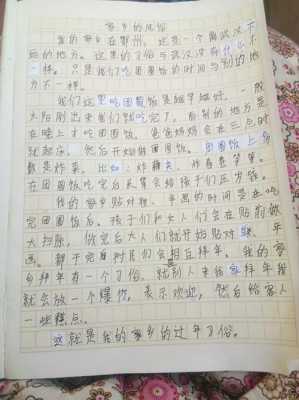 家乡的风俗
我的家乡在鄂州，这是一个离武汉不
远的地方。这里的习俗与武汉没有什么不
一样。只是我们吃团圆饭的时间与别的地
方不一样。
我们这里吃团圆饭是越早越好，一般
太阳刚出来我们就吃完了，而别的地方是
在晚上才吃团圆饭。爸爸妈妈会在三点时
就起床，然后开始做团圆饭。团圆饭上多
数是炸菜，比如：炸藕夹、炸春卷等等。
在团圆饭吃完后长辈会给孩子们压岁钱。
我的家乡贴对联、年画的时间是在吃
完团圆饭后。孩子们和大人们会在贴前做
大扫除，做完后大人们就开始贴对联、年
画。等于完自村民们会相互拜年。我的家
乡拜年有一个习俗，就别人来给你拜年时
就会放一个爆竹，表示欢迎，然后给客人
一些糕点。
这就是我的家乡的过年习俗。